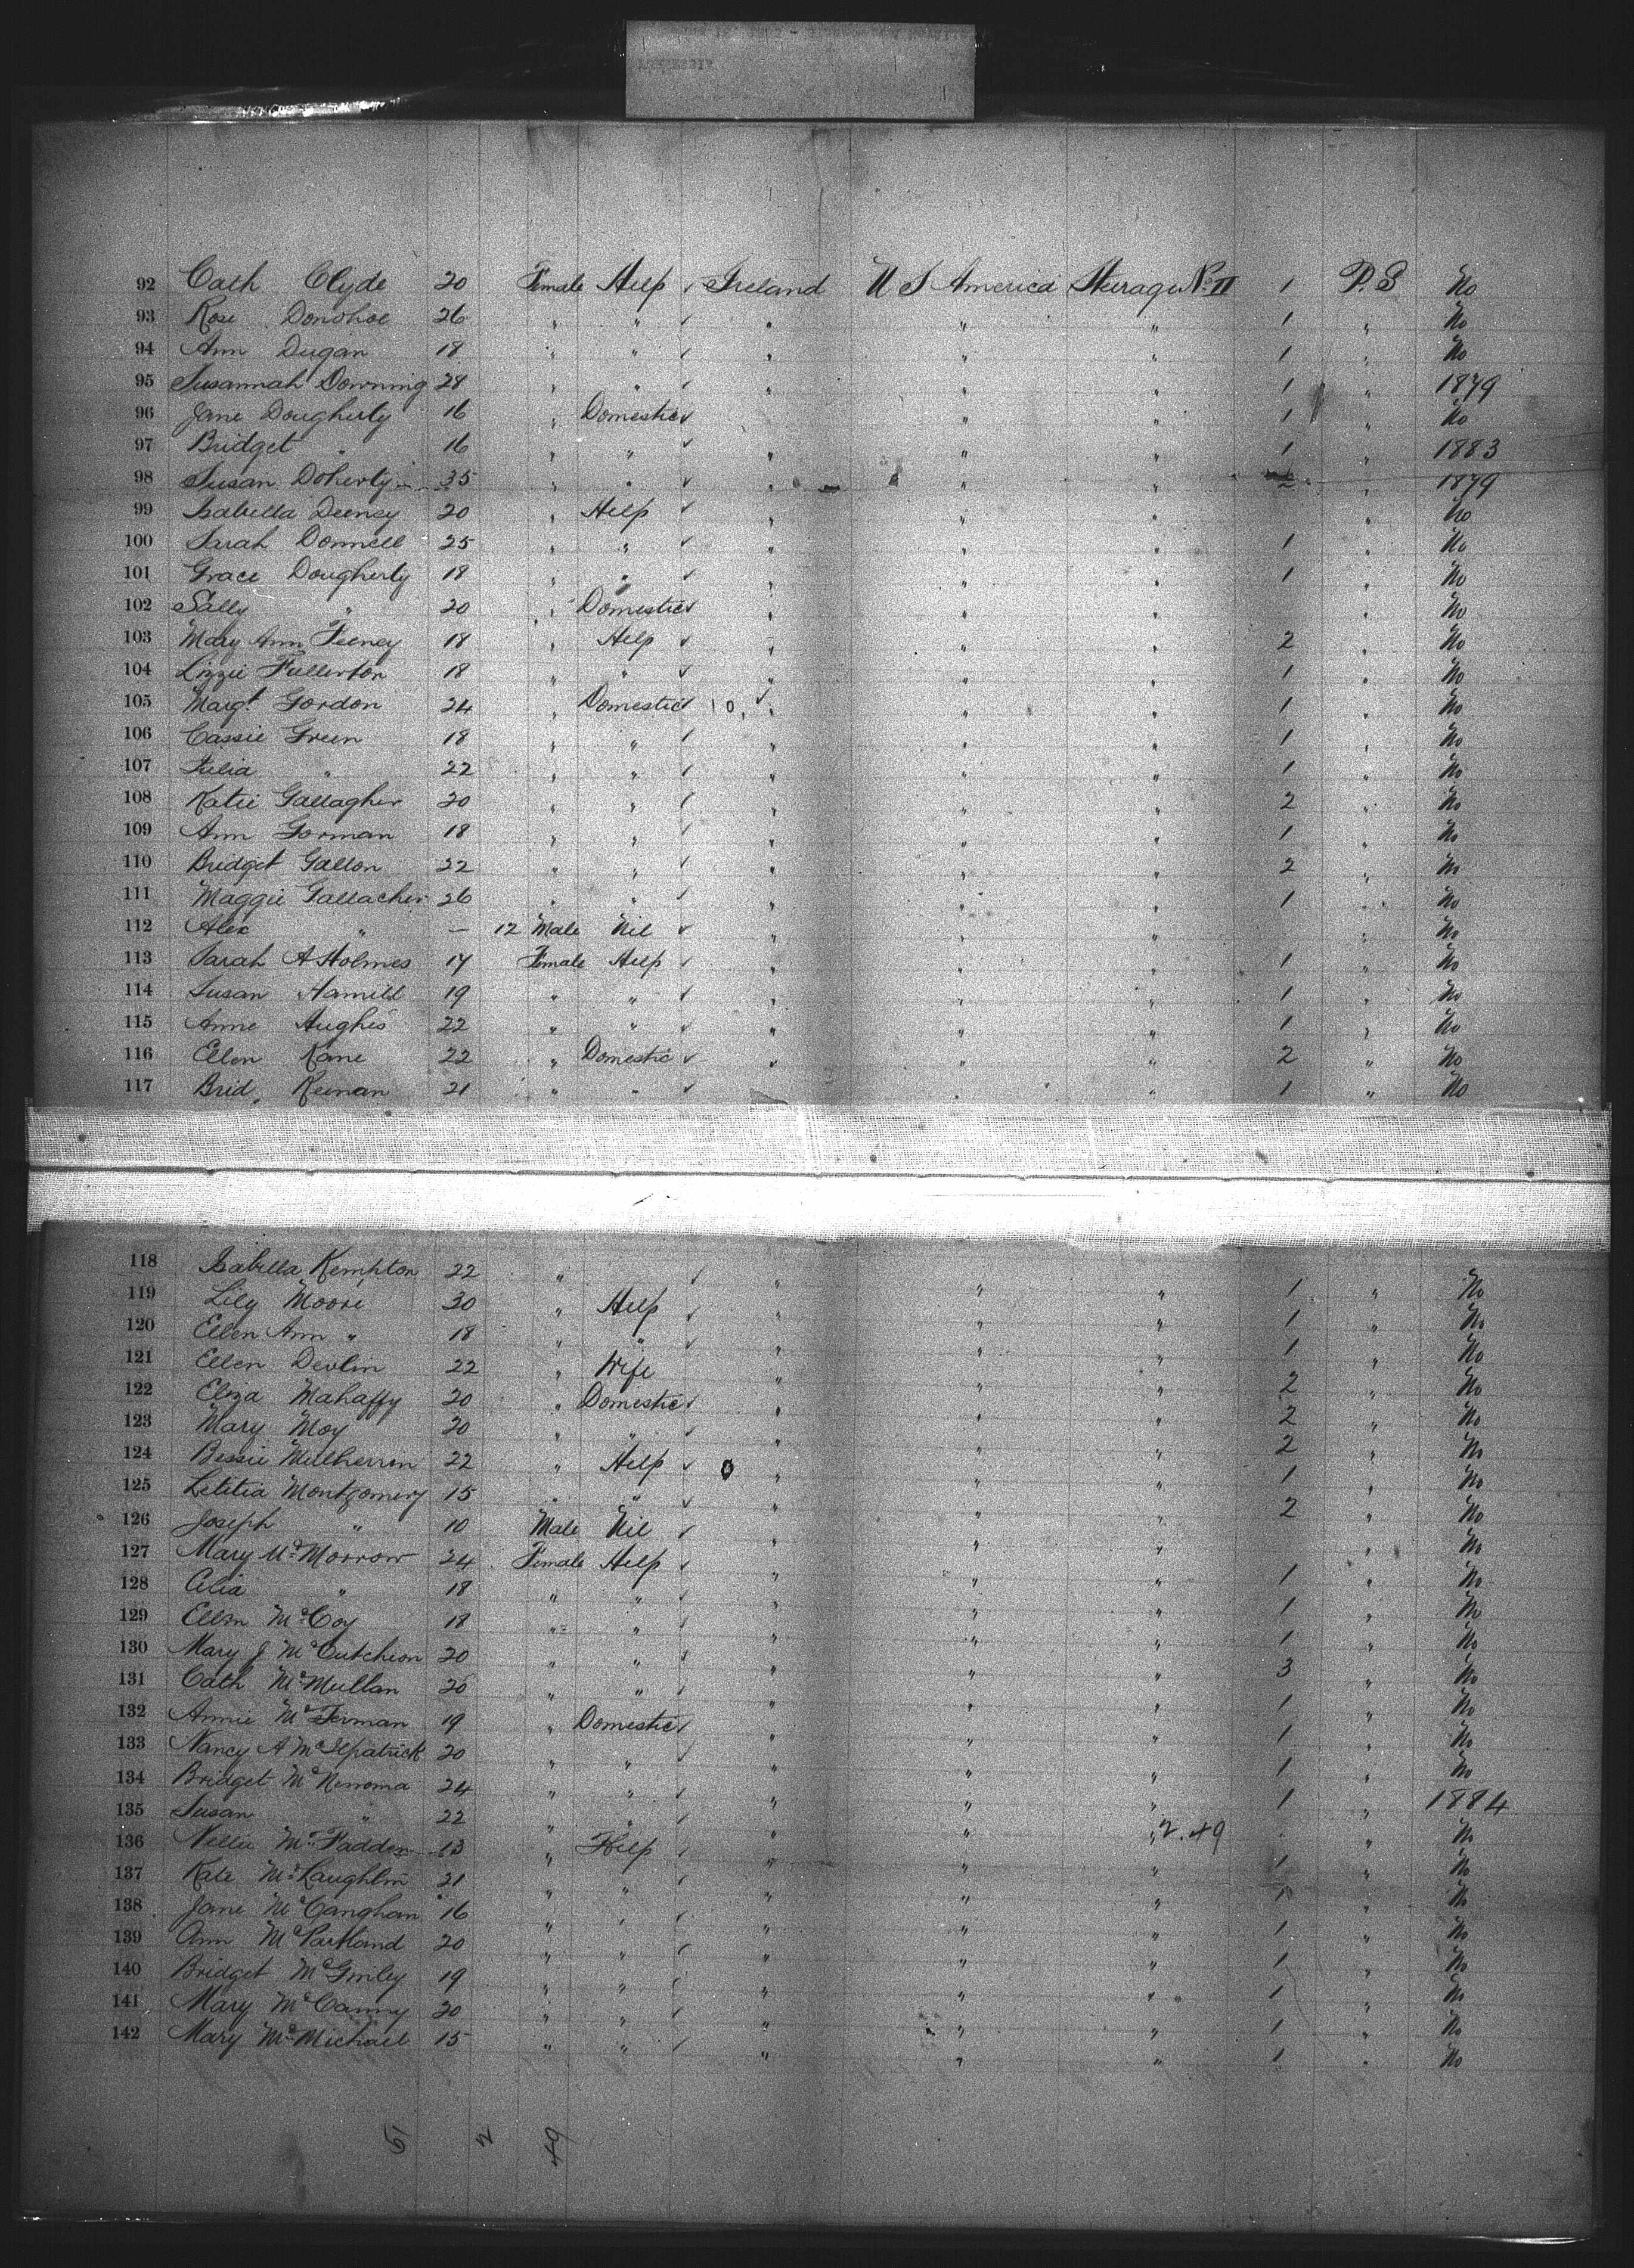 92 Cath Clyde 20 Female Help ✓ Ireland U S America Steerage No. II 1 P. S No
93 Rose Donohoe 26 " " ✓ " " " 1 " No
94 Ann Dugan 18 " " ✓ " " " 1 " No
95 Susannah Downing 28 " " ✓ " " " 1 " 1879
96 Jane Dougherty 16 " Domestic ✓ " " " 1 " No
97 Bridget " 16 " " ✓ " " " 1 " 1883
98 Susan Doherty 35 " " ✓ " " " 2 " 1879
99 Isabella Deeney 20 " Help ✓ " " " " No
100 Sarah Donnell 25 " " ✓ " " " 1 " No
101 Grace Dougherty 18 " " ✓ " " " 1 " No
102 Sally " 20 " Domestic ✓ " " " " No
103 Mary Ann Feeney 18 " Help ✓ " " " 2 " No
104 Lizzie Fullerton 18 " " ✓ " " " 1 " No
105 Margt. Gordon 24 " Domestic ✓ 0 ✓ " " " 1 " No
106 Cassie Green 18 " " ✓ " " " 1 " No
107 Julia " 22 " " ✓ " " " 1 " No
108 Katie Gallagher 20 " " ✓ " " " 2 " No
109 Ann Gorman 18 " " ✓ " " " 1 " No
110 Bridget Gallon 22 " " ✓ " " " 2 " No
111 Maggie Gallacher 26 " " ✓ " " " 1 " No
112 Alex " — 12 Male Nil ✓ " " " " No
113 Sarah A Holmes 17 Female Help ✓ " " " 1 " No
114 Susan Hamill 19 " " ✓ " " " 1 " No
115 Anne Hughes 22 " " ✓ " " " 1 " No
116 Ellen Kane 22 " Domestic ✓ " " " 2 " No
117 Brid. Keenan 21 " " ✓ " " " 1 " No
118 Isabella Kempton 22 " ✓ " " " 1 " No
119 Lily Moore 30 " Help ✓ " " " 1 " No
120 Ellen Ann " 18 " " ✓ " " " 1 " No
121 Ellen Devlin 22 " Wife " " " 2 " No
122 Eliza Mahaffy 20 " Domestic ✓ " " " 2 " No
123 Mary Moy 20 " " ✓ " " " 2 " No
124 Bessie Mulherrin 22 " Help ✓ 0 " " " 1 " No
125 Letitia Montgomery 15 " " ✓ " " " 2 " No
126 Joseph " 10 Male Nil ✓ " " " " No
127 Mary McMorrow 24 Female Help ✓ " " " 1 " No
128 Celia " 18 " " ✓ " " " 1 " No
129 Ellen McCoy 18 " " ✓ " " " 1 " No
130 Mary J McCutcheon 20 " " ✓ " " " 3 " No
131 Cath McMullan 26 " " ✓ " " " 1 " No
132 Annie 19 " Domestic ✓ " " " 1 " No
133 Nancy A McIlpatrick 20 " " ✓ " " " 1 " No
134 Bridget 24 " " ✓ " " " 1 " 1884
135 Susan " 22 " " ✓ " " " 2.49 " No
136 Nellie McFadden 13 " Help ✓ " " " 1 " No
137 Kate McLaughlin 21 " " ✓ " " " 1 " No
138 Jane 16 " " ✓ " " " 1 " No
139 Ann McPartland 20 " " ✓ " " " 1 " No
140 Bridget McGinley 19 " " ✓ " " " 1 " No
141 Mary McCanny 20 " " ✓ " " " 1 " No
142 Mary McMichael 15 " " ✓ " " " 1 " No
2 49